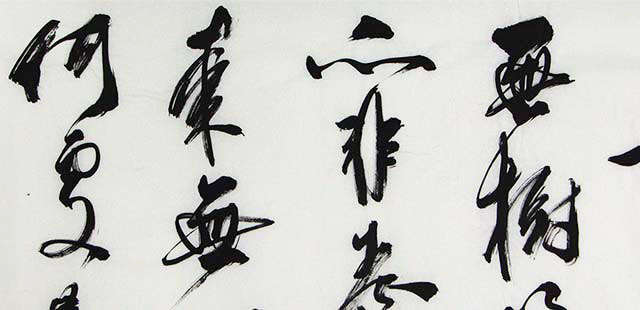 無樹
亦非
來無
何處